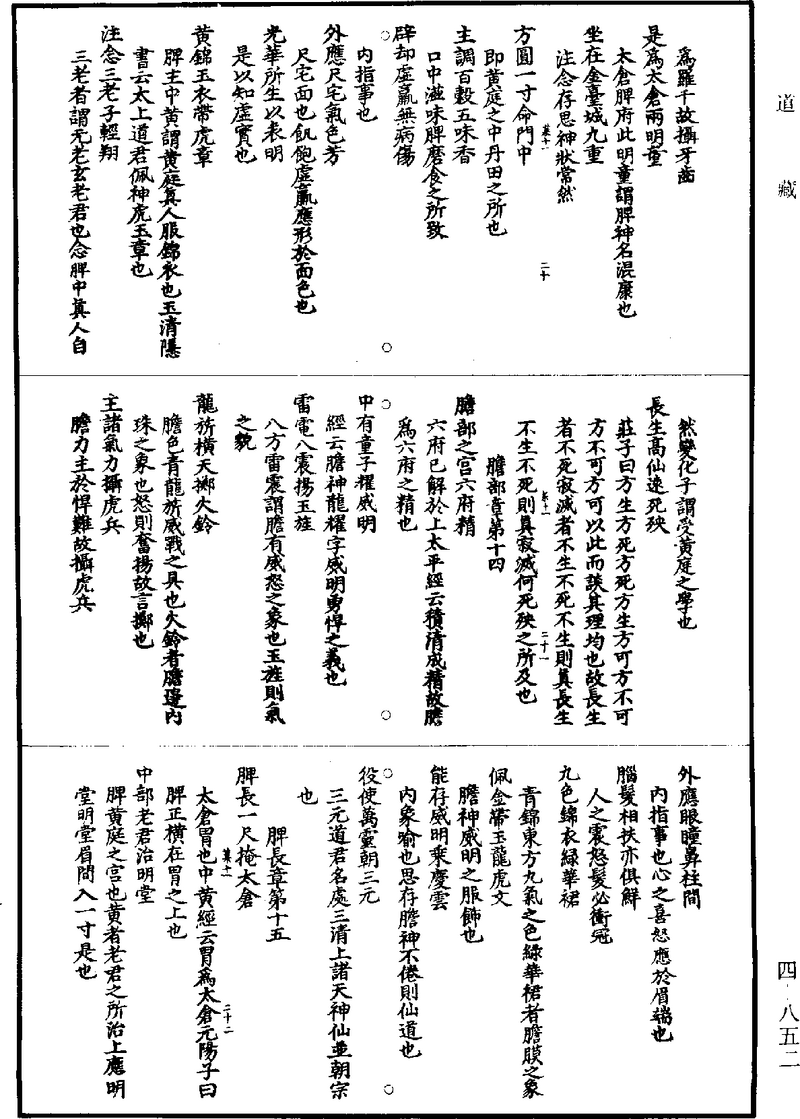 道藏
為羅千故攝牙齒
是為太倉兩明童
太倉脾府此明童謂脾神名混康也
坐在金臺城九重
注念存思神狀當然
方圓一寸命門中
即黃庭之中丹田之所也
主調百穀五味香
口中滋味脾磨食之所致
辟却虛羸無病傷
內指事也
外應尺宅氣色芳
尺宅面也飢飽虛羸應形於面色也
光華所生以表明
是以知虛實也
黃錦玉衣帶虎章
脾主中黃謂黃庭真人服錦衣也玉清隱
書云太上道君佩神虎玉章也
注念三老子輕翔
三老者謂元老玄老君也念脾中真人自
二十
然變化子謂受黃庭之學也
長生高仙遠死殃
莊子曰方生方死方死方生方可方不可
方不可方可以此而談其理均也故長生
者不死寂滅者不生不死不生則真長生
不生不死則真寂滅何死殃之所及也
二十一
膽部章第十四
膽部之宮六府精
六府已解於上太平經云積清成精故膽
為六府之精也
中有童子耀威明
經云膽神龍耀字威明勇悍之義也
雷電八震揚玉旌
八方雷震謂膽有威怒之象也玉旌則氣
之貌
龍旂橫天擲火鈴
膽色青龍旂威戰之具也火鈴者膽邊內
珠之象也怒則奮揚故言擲也
主諸氣力攝虎兵
膽力主於悍難故攝虎兵
外應眼瞳鼻柱間
內指事也心之喜怒應於眉端也
腦髮相扶亦俱鮮
人之震怒髮必衝冠
九色錦衣綠華裙
青錦東方九氣之色綠華裙者膽膜之象
佩金帶玉龍虎文
膽神威明之服飾也
能存威明乘慶雲
內象喻也思存膽神不倦則仙道也
役使萬靈朝三元
三元道君名處三清上諸天神仙並朝宗
也
脾長章第十五
脾長一尺掩太倉
太倉胃也中黃經云胃為太倉元陽子曰
二十二
脾正橫在胃之上也
中部老君治明堂
脾黃庭之宮也黃者老君之所治上應明
堂明堂眉間入一寸是也
四·八五二